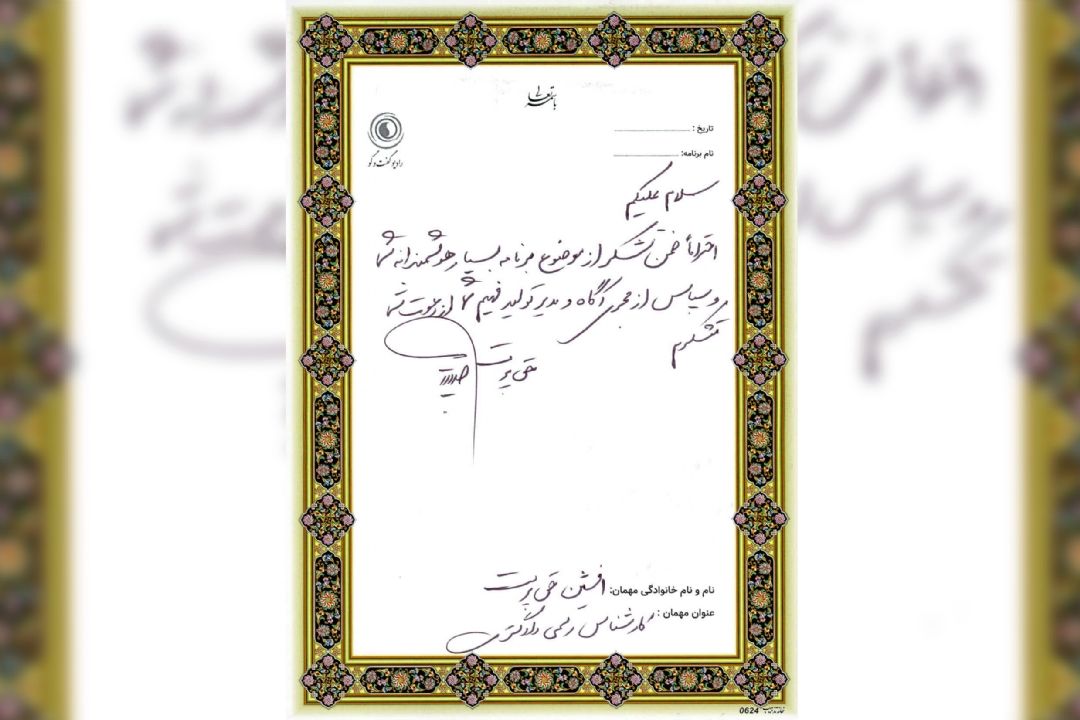 باسمه تعالی
رادیو گفت و گو
تاریخ :
نام برنامه:
سلام علیکم
احتراماً ضمن تشکر از موضوع برنامه بسیار هوشمندانه شما
و سپاس از مجری آگاه و مدیر تولید فهیم شما از دعوت شما
متشکرم
حق پرست
نام و نام خانوادگی مهمان: افشین حق پرست
عنوان مهمان : کارشناس رسمی دادگستری
0624